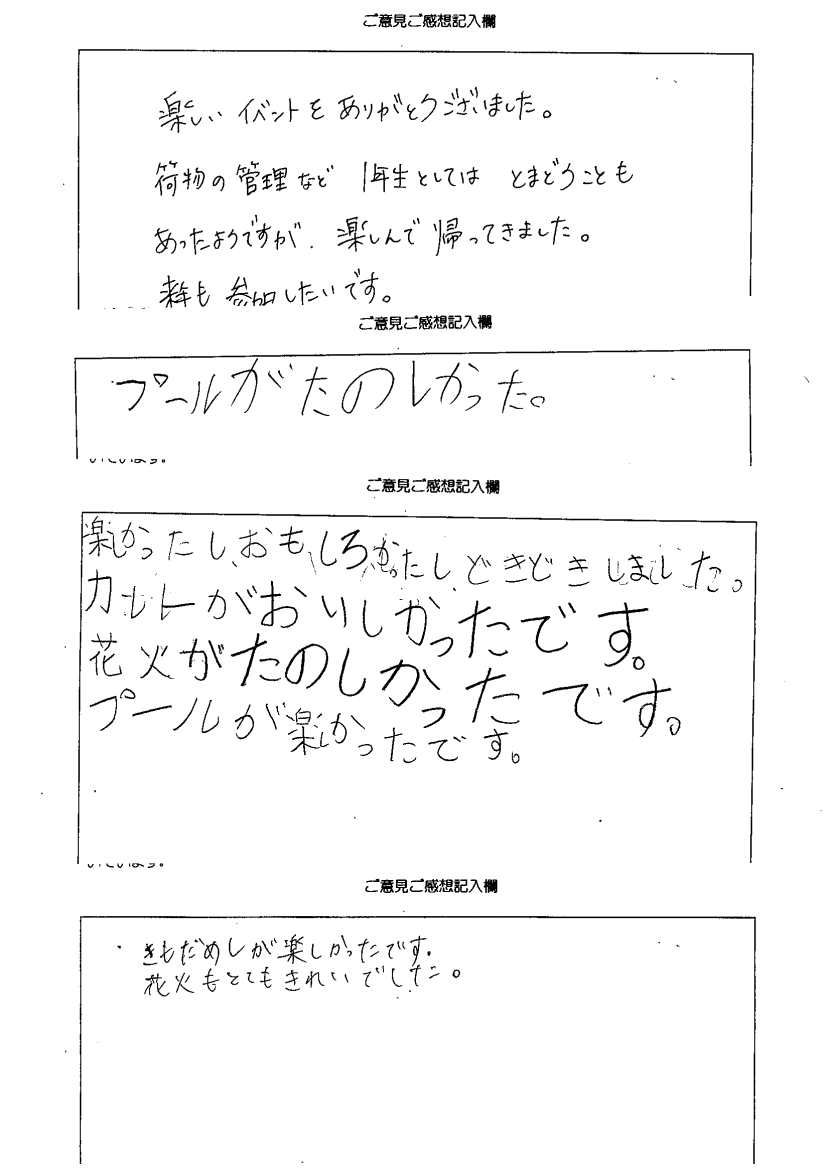 ご意見ご感想記入欄
楽しいイベントをありがとうございました。
荷物の管理など 1年生としては とまどうことも
あったようですが、楽しんで帰ってきました。
来年も参加したいです。
ご意見ご感想記入欄
プールがたのしかった。
ご意見ご感想記入欄
楽しかったし、おもしろかったし、どきどきしました。
カレーがおいしかったです。
花火がたのしかったです。
プールが楽しかったです。
ご意見ご感想記入欄
・きもだめしが楽しかったです。
花火もとてもきれいでした。